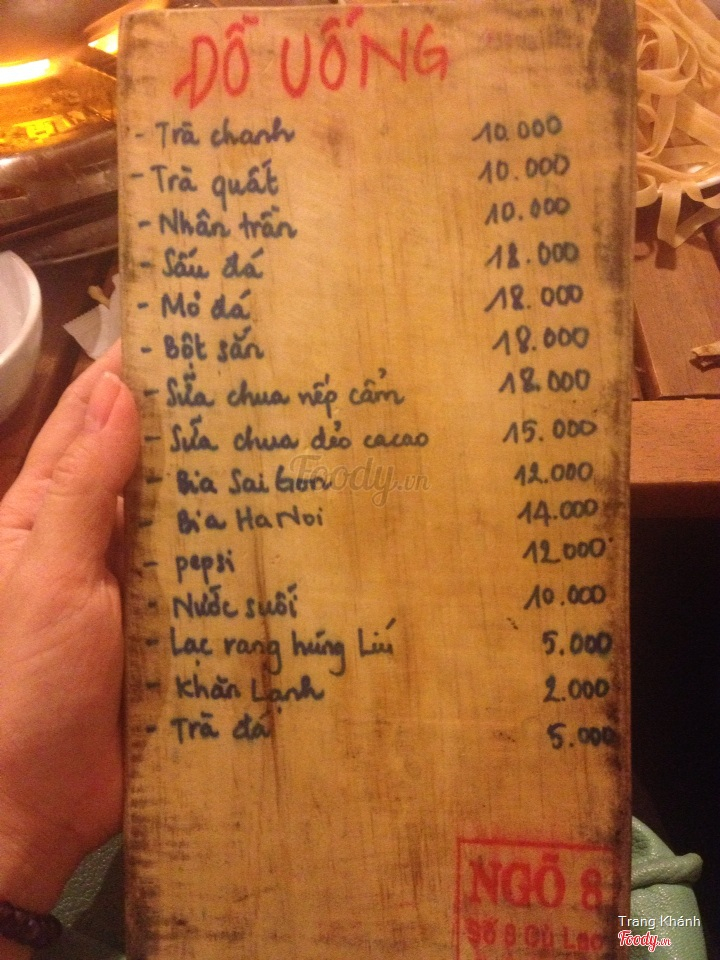 ĐỒ UỐNG
- Trà chanh 10.000
- Trà quất 10.000
- Nhân trần 10.000
- Sấu đá 18.000
- Mơ đá 18.000
- Bột sắn 18.000
- Sữa chua nếp cẩm 18.000
- Sữa chua dẻo cacao 15.000
- Bia SaiGon 12.000
- Bia HaNoi 14.000
- pepsi 12.000
- Nước suối 10.000
- Lạc rang húng Lìu 5.000
- Khăn Lạnh 2.000
- Trà đá 5.000
Foody.vn
NGÕ 8
Số 8
Trang Khánh
Foody.vn